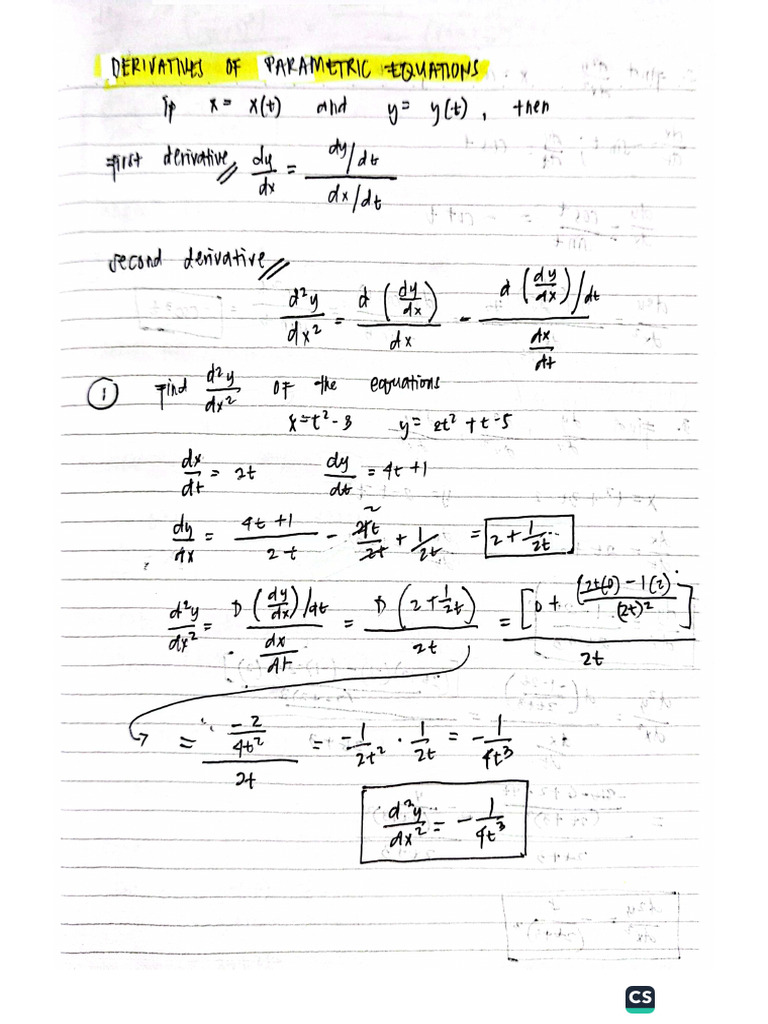 DERIVATIVES OF PARAMETRIC EQUATIONS
If x = x(t) and y = y(t), then
First derivative // dy/dx = (dy/dt) / (dx/dt)
second derivative //
d²y/dx² = d(dy/dx) / dx = (d(dy/dx)/dt) / (dx/dt)
① Find d²y/dx² OF the equations
x = t² - 3 y = 2t² + t - 5
dx/dt = 2t dy/dt = 4t + 1
dy/dx = (4t + 1) / 2t = 4t/2t + 1/2t = 2 + 1/2t
d²y/dx² = (D(dy/dx)/dt) / (dx/dt) = D(2 + 1/2t) / 2t = [0 + (2t(0) - 1(2)) / (2t)²] / 2t
= (-2/4t²) / 2t = -1/2t² · 1/2t = -1/4t³
d²y/dx² = -1/4t³
CS